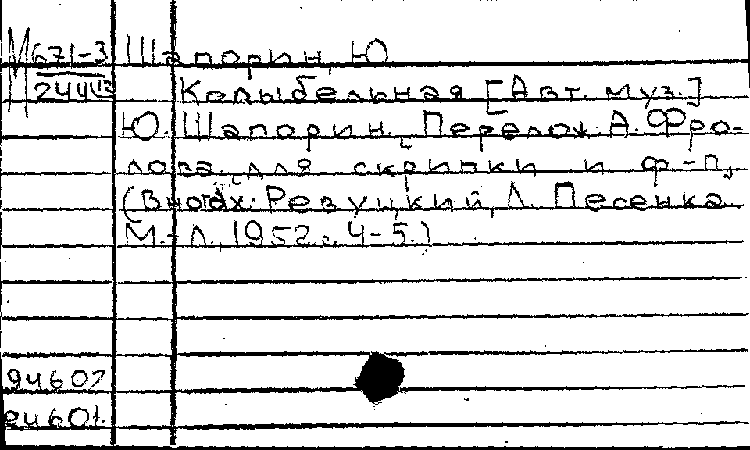 М671-3 Шапорин, Ю
24442 Колыбельная [Авт. муз.]
Ю. Шапорин. Перелож. А. Фро-
лова для скрипки и ф-п,
(В нотах: Ревуцкий, Л. Песенка
М.-Л, 1952г., 4-5.)
94602
24601